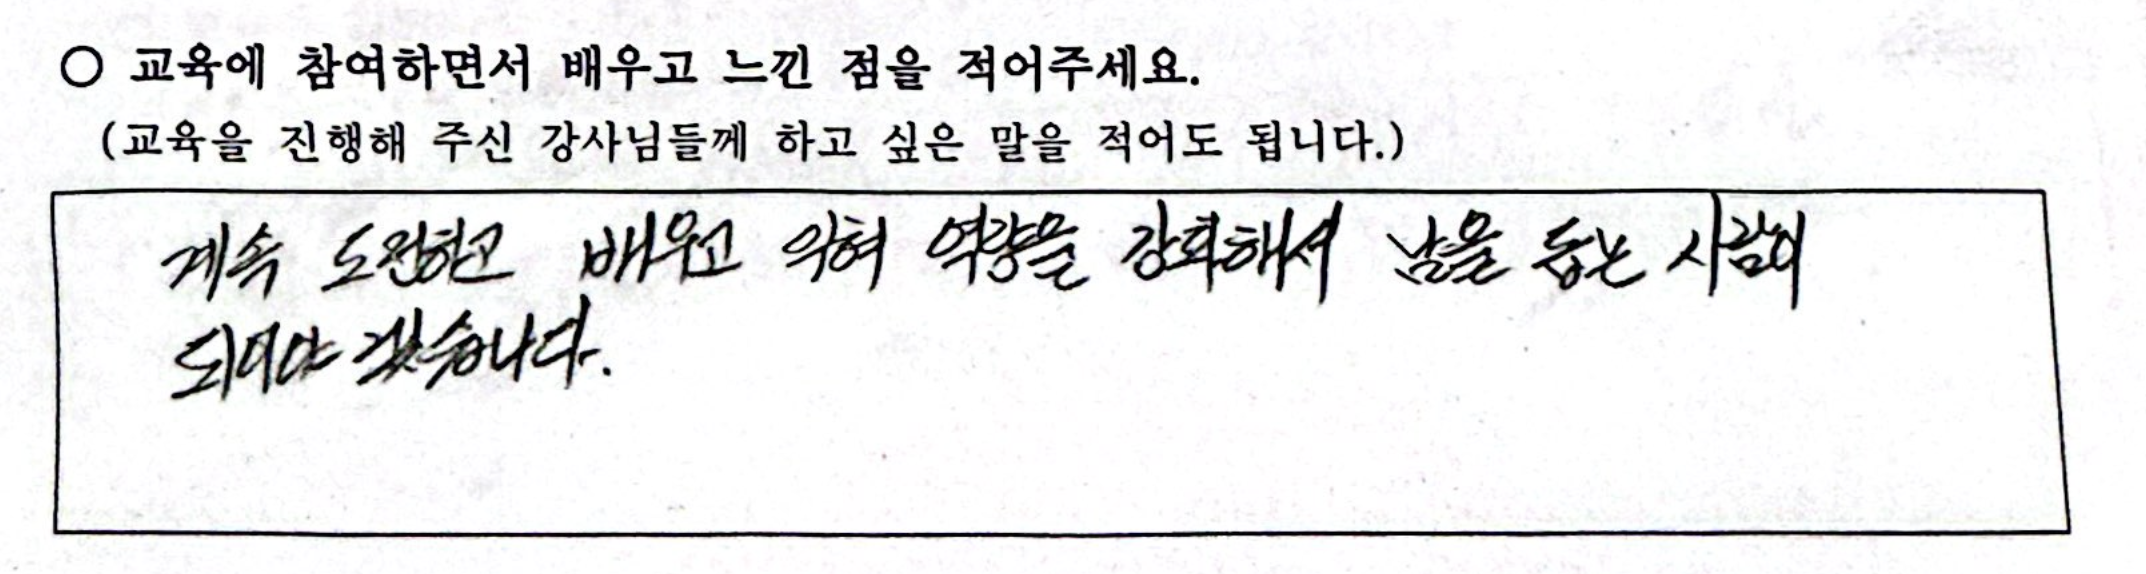 ○ 교육에 참여하면서 배우고 느낀 점을 적어주세요.
(교육을 진행해 주신 강사님들께 하고 싶은 말을 적어도 됩니다.)
계속 도전하고 배우고 익혀 역량을 강화해서 남을 돕는 사람이
되어야 겠습니다.